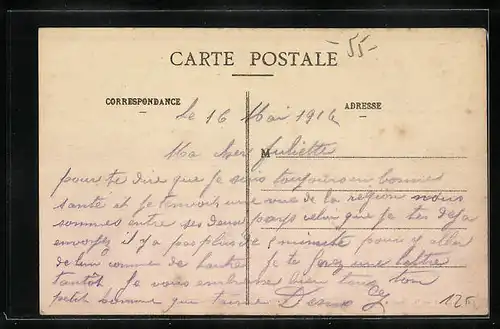 - 55 -
CARTE POSTALE
CORRESPONDANCE
ADRESSE
le 16 Mai 1916
M
Ma cher Juliette
pour te dire que je suis toujours en bonnes
santé et je t'envoit une vue de la région nous
sommes entre ses deux pays celui que je tes déja
envoyez il y a pas plus de minute pour y aller
de lun comme de lautre je te ferez une lettre
tantôt je vous embrasse bien tous ton
petit homme qui
125